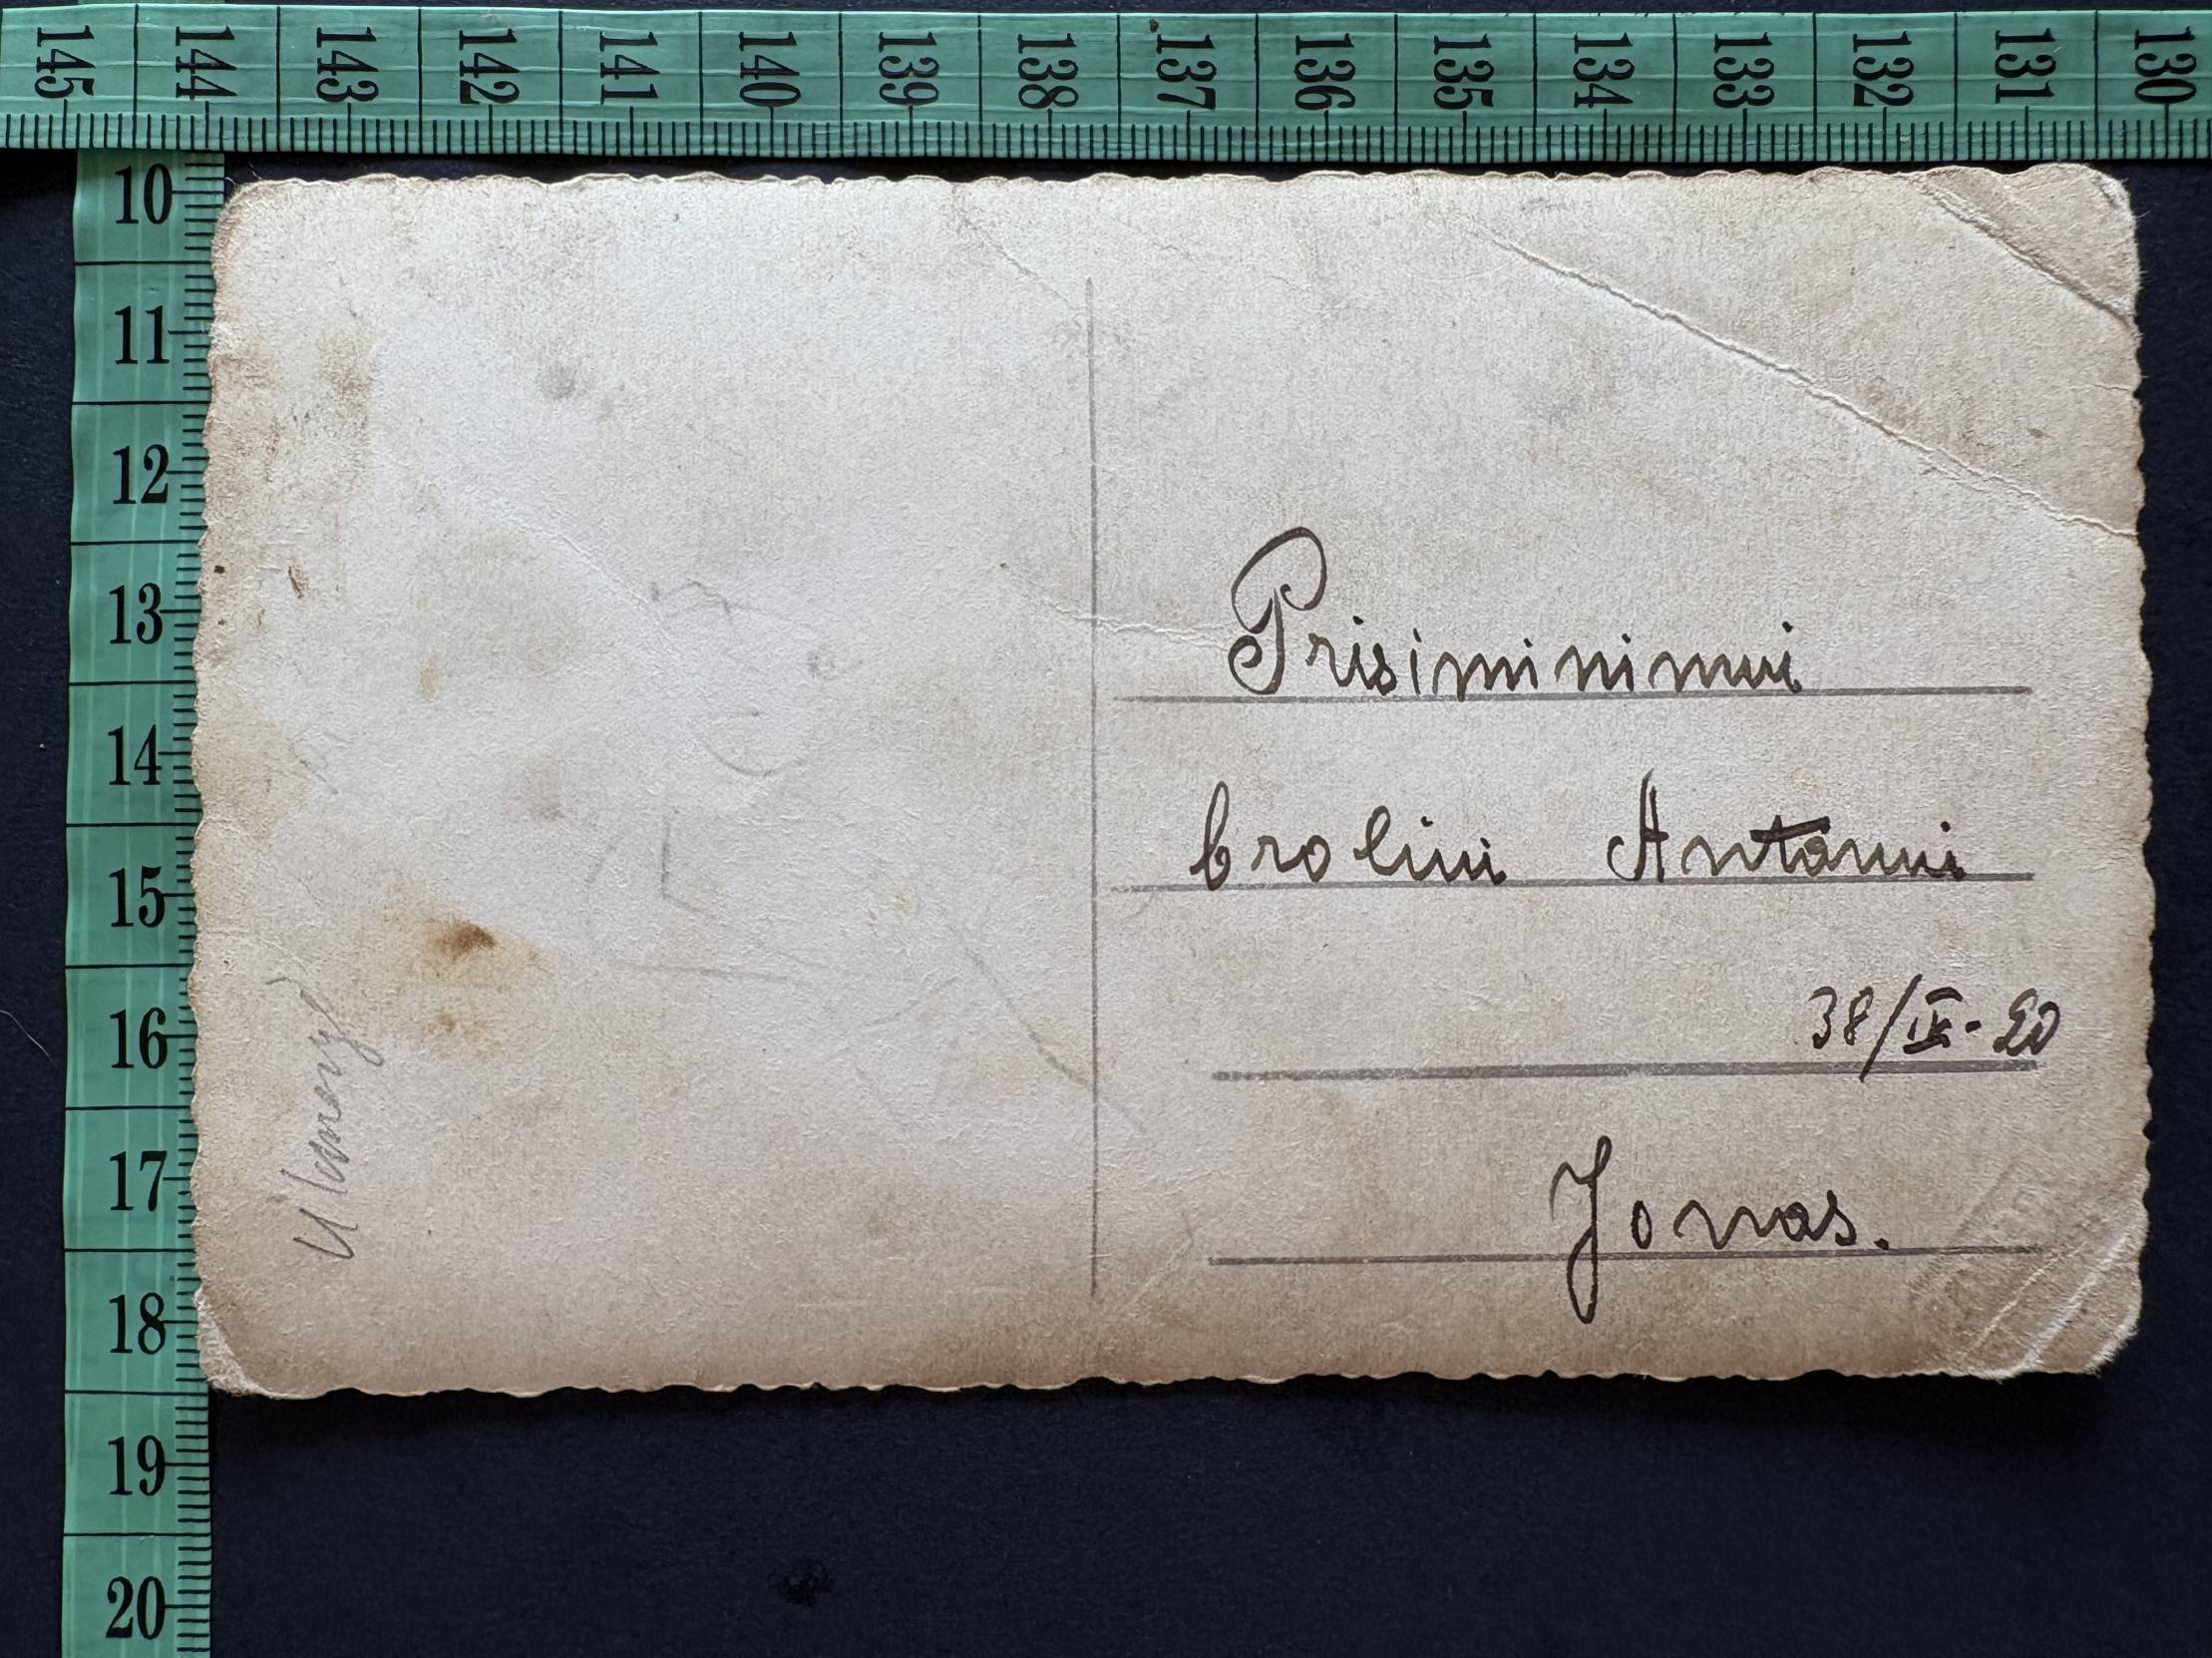 145 144 143 142 141 140 139 138 137 136 135 134 133 132 131 130
10
11
12
13
14
15
16
17
18
19
20
Prisiminimui
broliui Antanui
38/IX-20
Jonas.